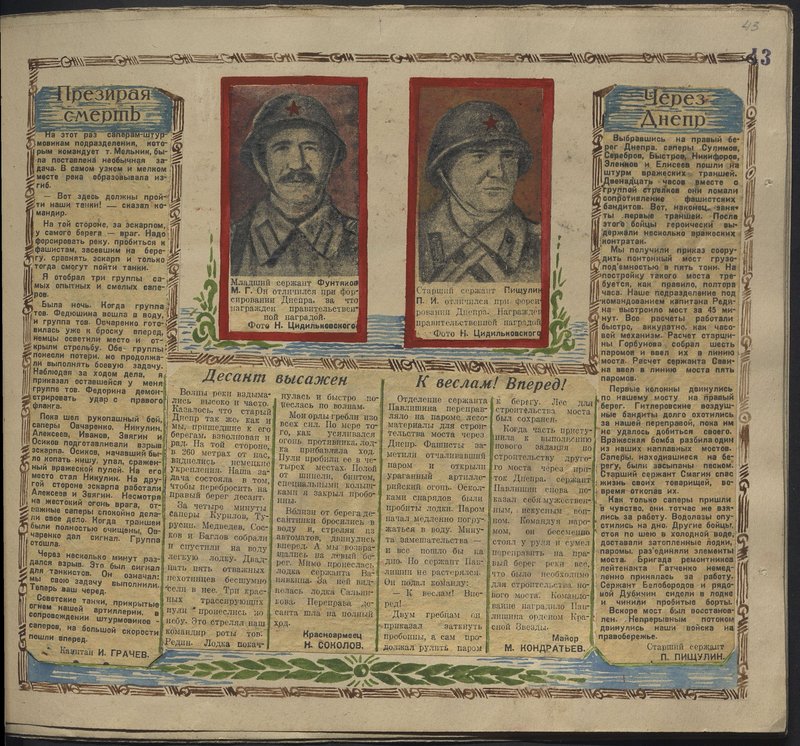 43
43
Презирая
смерть
На этот раз саперам-штур-
мовикам подразделения, кото-
рым командует т. Мельник, бы-
ла поставлена необычная за-
дача. В самом узком и мелком
месте река образовывала из-
гиб.
— Вот здесь должны прой-
ти наши танки! — сказал ко-
мандир.
На той стороне, за эскарпом,
у самого берега — враг. Надо
форсировать реку, пробиться к
фашистам, засевшим на бере-
гу, сравнять эскарп и только
тогда смогут пойти танки.
Я отобрал три группы са-
мых опытных и смелых сапе-
ров.
Была ночь. Когда группа
тов. Федюшина вошла в воду,
и группа тов. Овчаренко гото-
вилась уже к броску вперед,
немцы осветили место и от-
крыли стрельбу. Обе группы
понесли потери, но продолжа-
ли выполнять боевую задачу.
Наблюдая за ходом дела, я
приказал оставшейся у меня
группе тов. Федорина демон-
стрировать удар с правого
фланга.
Пока шел рукопашный бой,
саперы Овчаренко, Никулин,
Алексеев, Иванов, Звягин и
Осиков подготавливали взрыв
эскарпа. Осиков, начавший бы-
ло копать нишу, упал, сражен-
ный вражеской пулей. На его
место стал Никулин. На дру-
гой стороне эскарпа работали
Алексеев и Звягин. Несмотря
на жестокий огонь врага, от-
важные саперы спокойно дела-
ли свое дело. Когда траншеи
были полностью очищены, Ов-
чаренко дал сигнал. Группа
отошла.
Через несколько минут раз-
дался взрыв. Это был сигнал
для танкистов. Он означал:
мы свою задачу выполнили.
Теперь ваш черед.
Советские танки, прикрытые
огнем нашей артиллерии, в
сопровождении штурмовиков-
саперов, на большой скорости
пошли вперед.
Капитан И. ГРАЧЕВ.
Младший сержант Фунтяков
М. Г. Он отличился при фор-
сировании Днепра, за что
награжден правительствен
ной наградой.
Фото Н. Цидильковского
Старший сержант Пищулин
П. И. отличился при форси-
ровании Днепра. Награжден
правительственной наградой
Фото Н. Цидильковского
Десант высажен
Волны реки вздыма-
лись высоко и часто.
Казалось, что старый
Днепр так же, как и
мы, пришедшие к его
берегам, взволнован и
рад. На той стороне,
в 260 метрах от нас,
виднелись немецкие
укрепления. Наша за-
дача состояла в том,
чтобы перебросить на
правый берег десант.
За четыре минуты
саперы Курилов, Ту-
русин, Медведев, Сос-
ков и Баглов собрали
и спустили на воду
легкую лодку. Двад-
цать пять отважных
пехотинцев бесшумно
сели в нее. Три крас-
ных трассирующих
пули пронеслись по
небу. Это стрелял наш
командир роты тов.
Редин. Лодка покач-
нулась и быстро по-
неслась по волнам.
Мои орлы гребли изо
всех сил. По мере то-
го, как усиливался
огонь противника, лод-
ка прибавляла ход.
Пули пробили ее в че-
тырех местах. Полой
от шинели, бинтом,
специальными колыш-
ками я закрыл пробо-
ины.
Вблизи от берега де-
сантники бросились в
воду и, стреляя из
автоматов, двинулись
вперед. А мы возвра-
щались на левый бе-
рег. Мимо пронеслась
лодка сержанта Ва-
нявкина. За ней вид-
нелась лодка Сальни-
кова. Переправа де-
санта шла на полный
ход.
Красноармеец
Н. СОКОЛОВ.
К веслам! Вперед!
Отделение сержанта
Павлишина переправ-
ляло на пароме лесо-
материалы для строи-
тельства моста через
Днепр. Фашисты за-
метили отчаливший
паром и открыли
ураганный артилле-
рийский огонь. Оскол-
ками снарядов были
пробиты лодки. Паром
начал медленно погру-
жаться в воду. Мину-
та замешательства —
и все пошло бы на
дно. Но сержант Пав-
лишин не растерялся.
Он подал команду:
— К веслам! Впе-
ред!
Двум гребцам он
приказал заткнуть
пробоины, а сам про-
должал рулить паром
к берегу. Лес для
строительства моста
был сохранен.
Когда часть присту-
пила к выполнению
нового задания по
строительству друго-
го моста через при-
ток Днепра, сержант
Павлишин снова по-
казал себя мужествен-
ным, искусным вои-
ном. Командуя паро-
мом, он бессменно
стоял у руля и сумел
переправить на пра-
вый берег реки все,
что было необходимо
для строительства но-
вого моста. Командо-
вание наградило Пав-
лишина орденом Крас-
ной Звезды.
Майор
М. КОНДРАТЬЕВ.
Через
Днепр
Выбравшись на правый бе-
рег Днепра, саперы Сулимов,
Серебров, Быстров, Никифоров,
Зленков и Елисеев пошли на
штурм вражеских траншей.
Двенадцать часов вместе с
группой стрелков они ломали
сопротивление фашистских
бандитов. Вот, наконец, заня-
ты первые траншеи. После
этого бойцы героически вы-
держали несколько вражеских
контратак.
Мы получили приказ соору-
дить понтонный мост грузо-
под'емностью в пять тонн. На
постройку такого моста тре-
буется, как правило, полтора
часа. Наше подразделение под
командованием капитана Реди-
на выстроило мост за 45 ми-
нут. Все расчеты работали
быстро, аккуратно, как часо-
вой механизм. Расчет старши-
ны Горбунова собрал шесть
паромов и ввел их в линию
моста. Расчет сержанта Сави-
на ввел в линию моста пять
паромов.
Первые колонны двинулись
по нашему мосту на правый
берег. Гитлеровские воздуш-
ные бандиты долго охотились
за нашей переправой, пока им
не удалось добиться своего.
Вражеская бомба разбила один
из наших наплавных мостов.
Саперы, находившиеся на бе-
регу, были засыпаны песком.
Старший сержант Смагин спас
жизнь своих товарищей, во-
время откопав их.
Как только саперы пришли
в чувство, они тотчас же взя-
лись за работу. Водолазы опу-
стились на дно. Другие бойцы,
стоя по шею в холодной воде,
доставали затопленные лодки,
паромы, раз'единяли элементы
моста. Бригада ремонтников
лейтенанта Гатченко немед-
ленно принялась за работу.
Сержант Белобородов и рядо-
мой Дубичин сидели в лодке
и чинили пробитые борты.
Вскоре мост был восстанов-
лен. Непрерывным потоком
двинулись наши войска на
правобережье.
Старший сержант
П. ПИЩУЛИН.